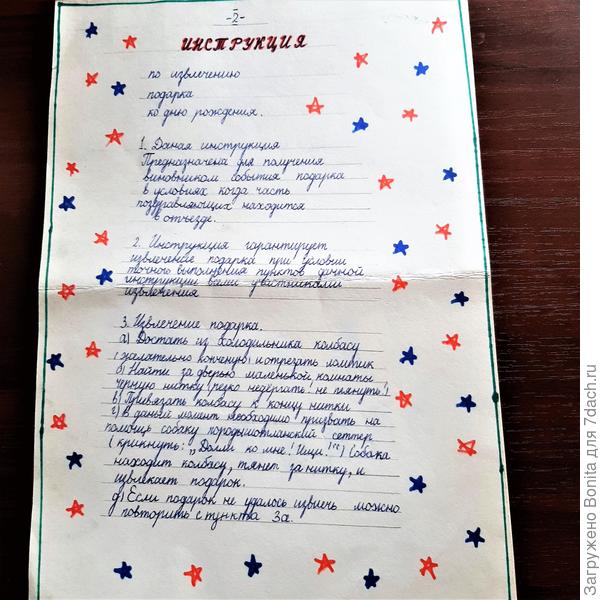 -2-
ИНСТРУКЦИЯ
по извлечению
подарка
ко дню рождения.
1. Даная инструкция
Предназначена для получения
виновником события подарка
в условиях когда часть
поздравляющих находится
в отъезде.
2. Инструкция гарантирует
извлечение подарка при условии
точного выполнения пунктов данной
инструкции всеми участниками
извлечения
3. Извлечение подарка.
а) Достать из холодильника колбасу
(желательно копченую) и отрезать ломтик
б) Найти за дверью маленькой комнаты
черную нитку (резко не дёргать! не тянуть!)
в) Привязать колбасу к концу нитки
г) В даный момент необходимо призвать на
помощь собаку породы шотланский сеттер
(крикнуть: "Долли ко мне! Ищи!") Собака
находит колбасу, тянет за нитку, и
извлекает подарок.
д) Если подарок не удалось извлечь можно
повторить с пункта 3а.
Загружено Bonita для 7dach.ru